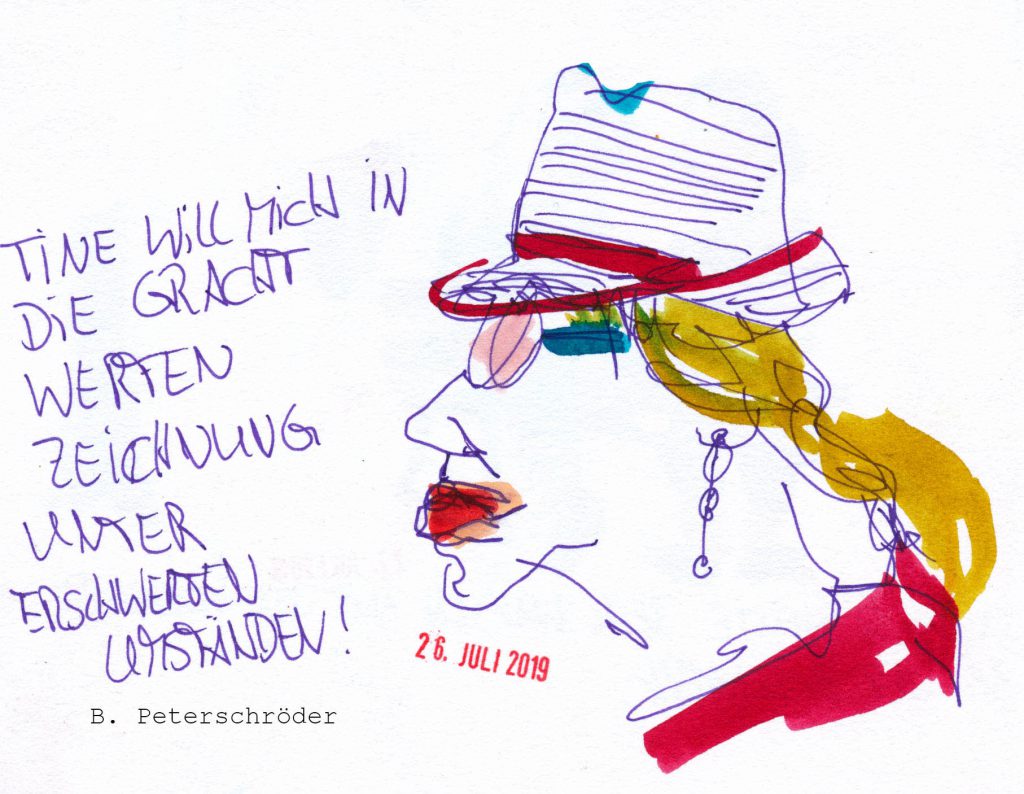 TINE WILL MICH IN
DIE GRACHT
WERFEN
ZEICHNUNG
UNTER
ERSCHWERTEN
UMSTÄNDEN!
26. JULI 2019
B. Peterschröder